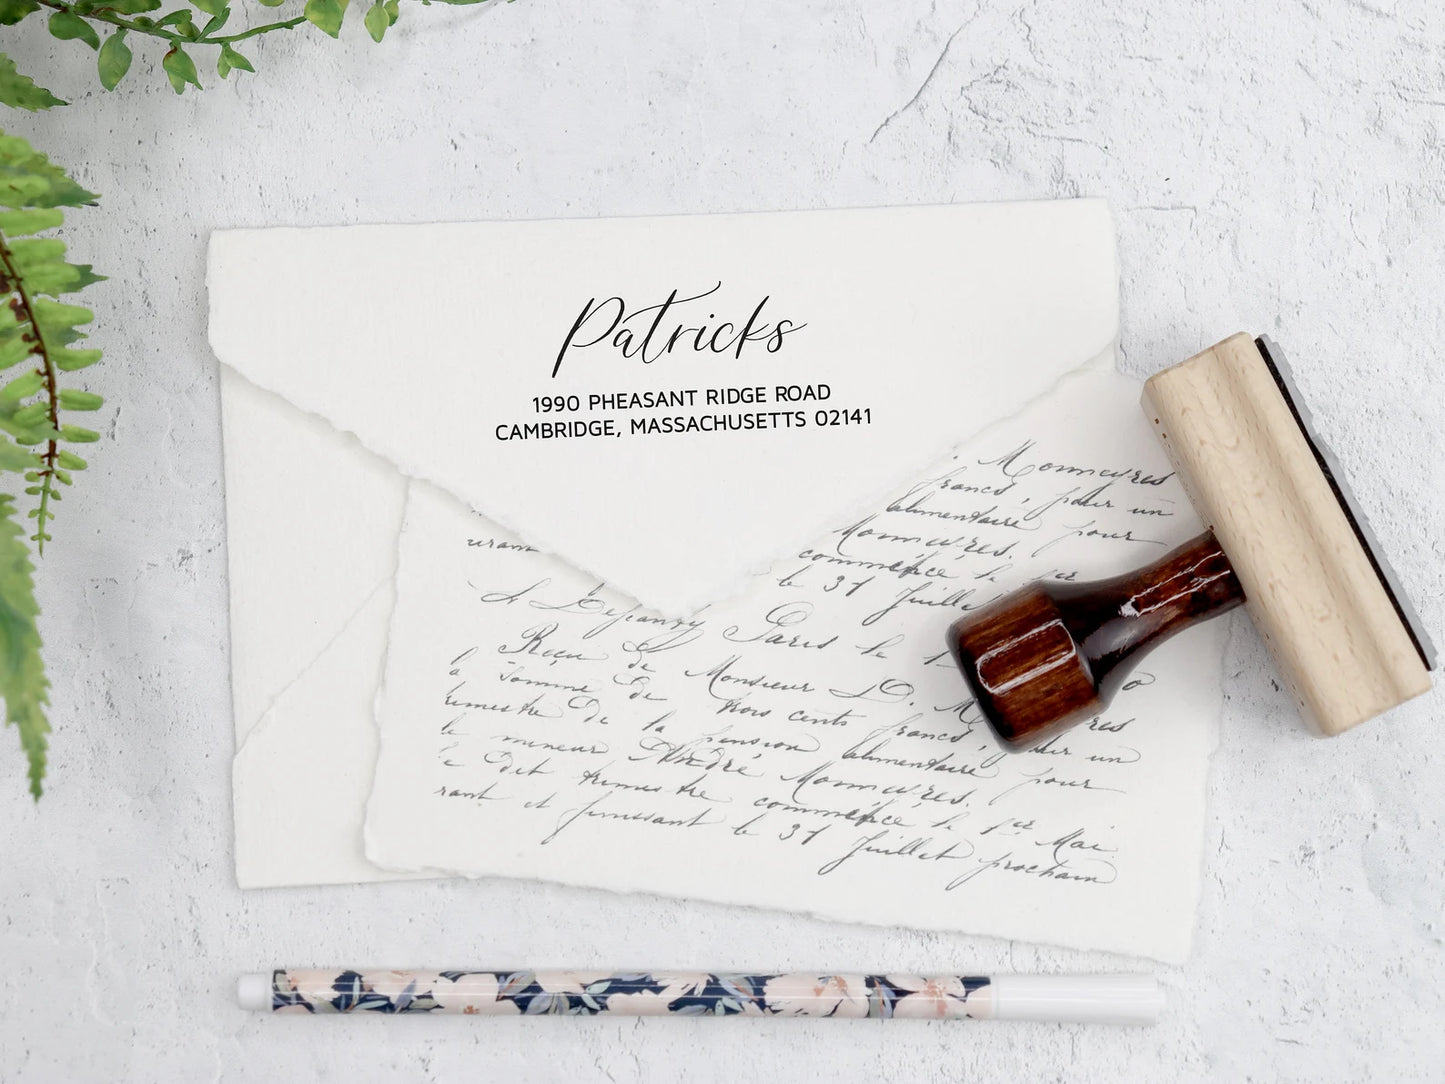 Patricks
1990 PHEASANT RIDGE ROAD
CAMBRIDGE, MASSACHUSETTS 02141
francs, pour un
alimentaire pour
commencé le 1er
le 31 Juillet
Paris le
Reçu de Monsieur D.
la Somme de trois cents francs, pour un
trimestre de la pension alimentaire pour
le mineur André
dit trimestre commencé le 1er Mai
rant et finissant le 31 Juillet prochain